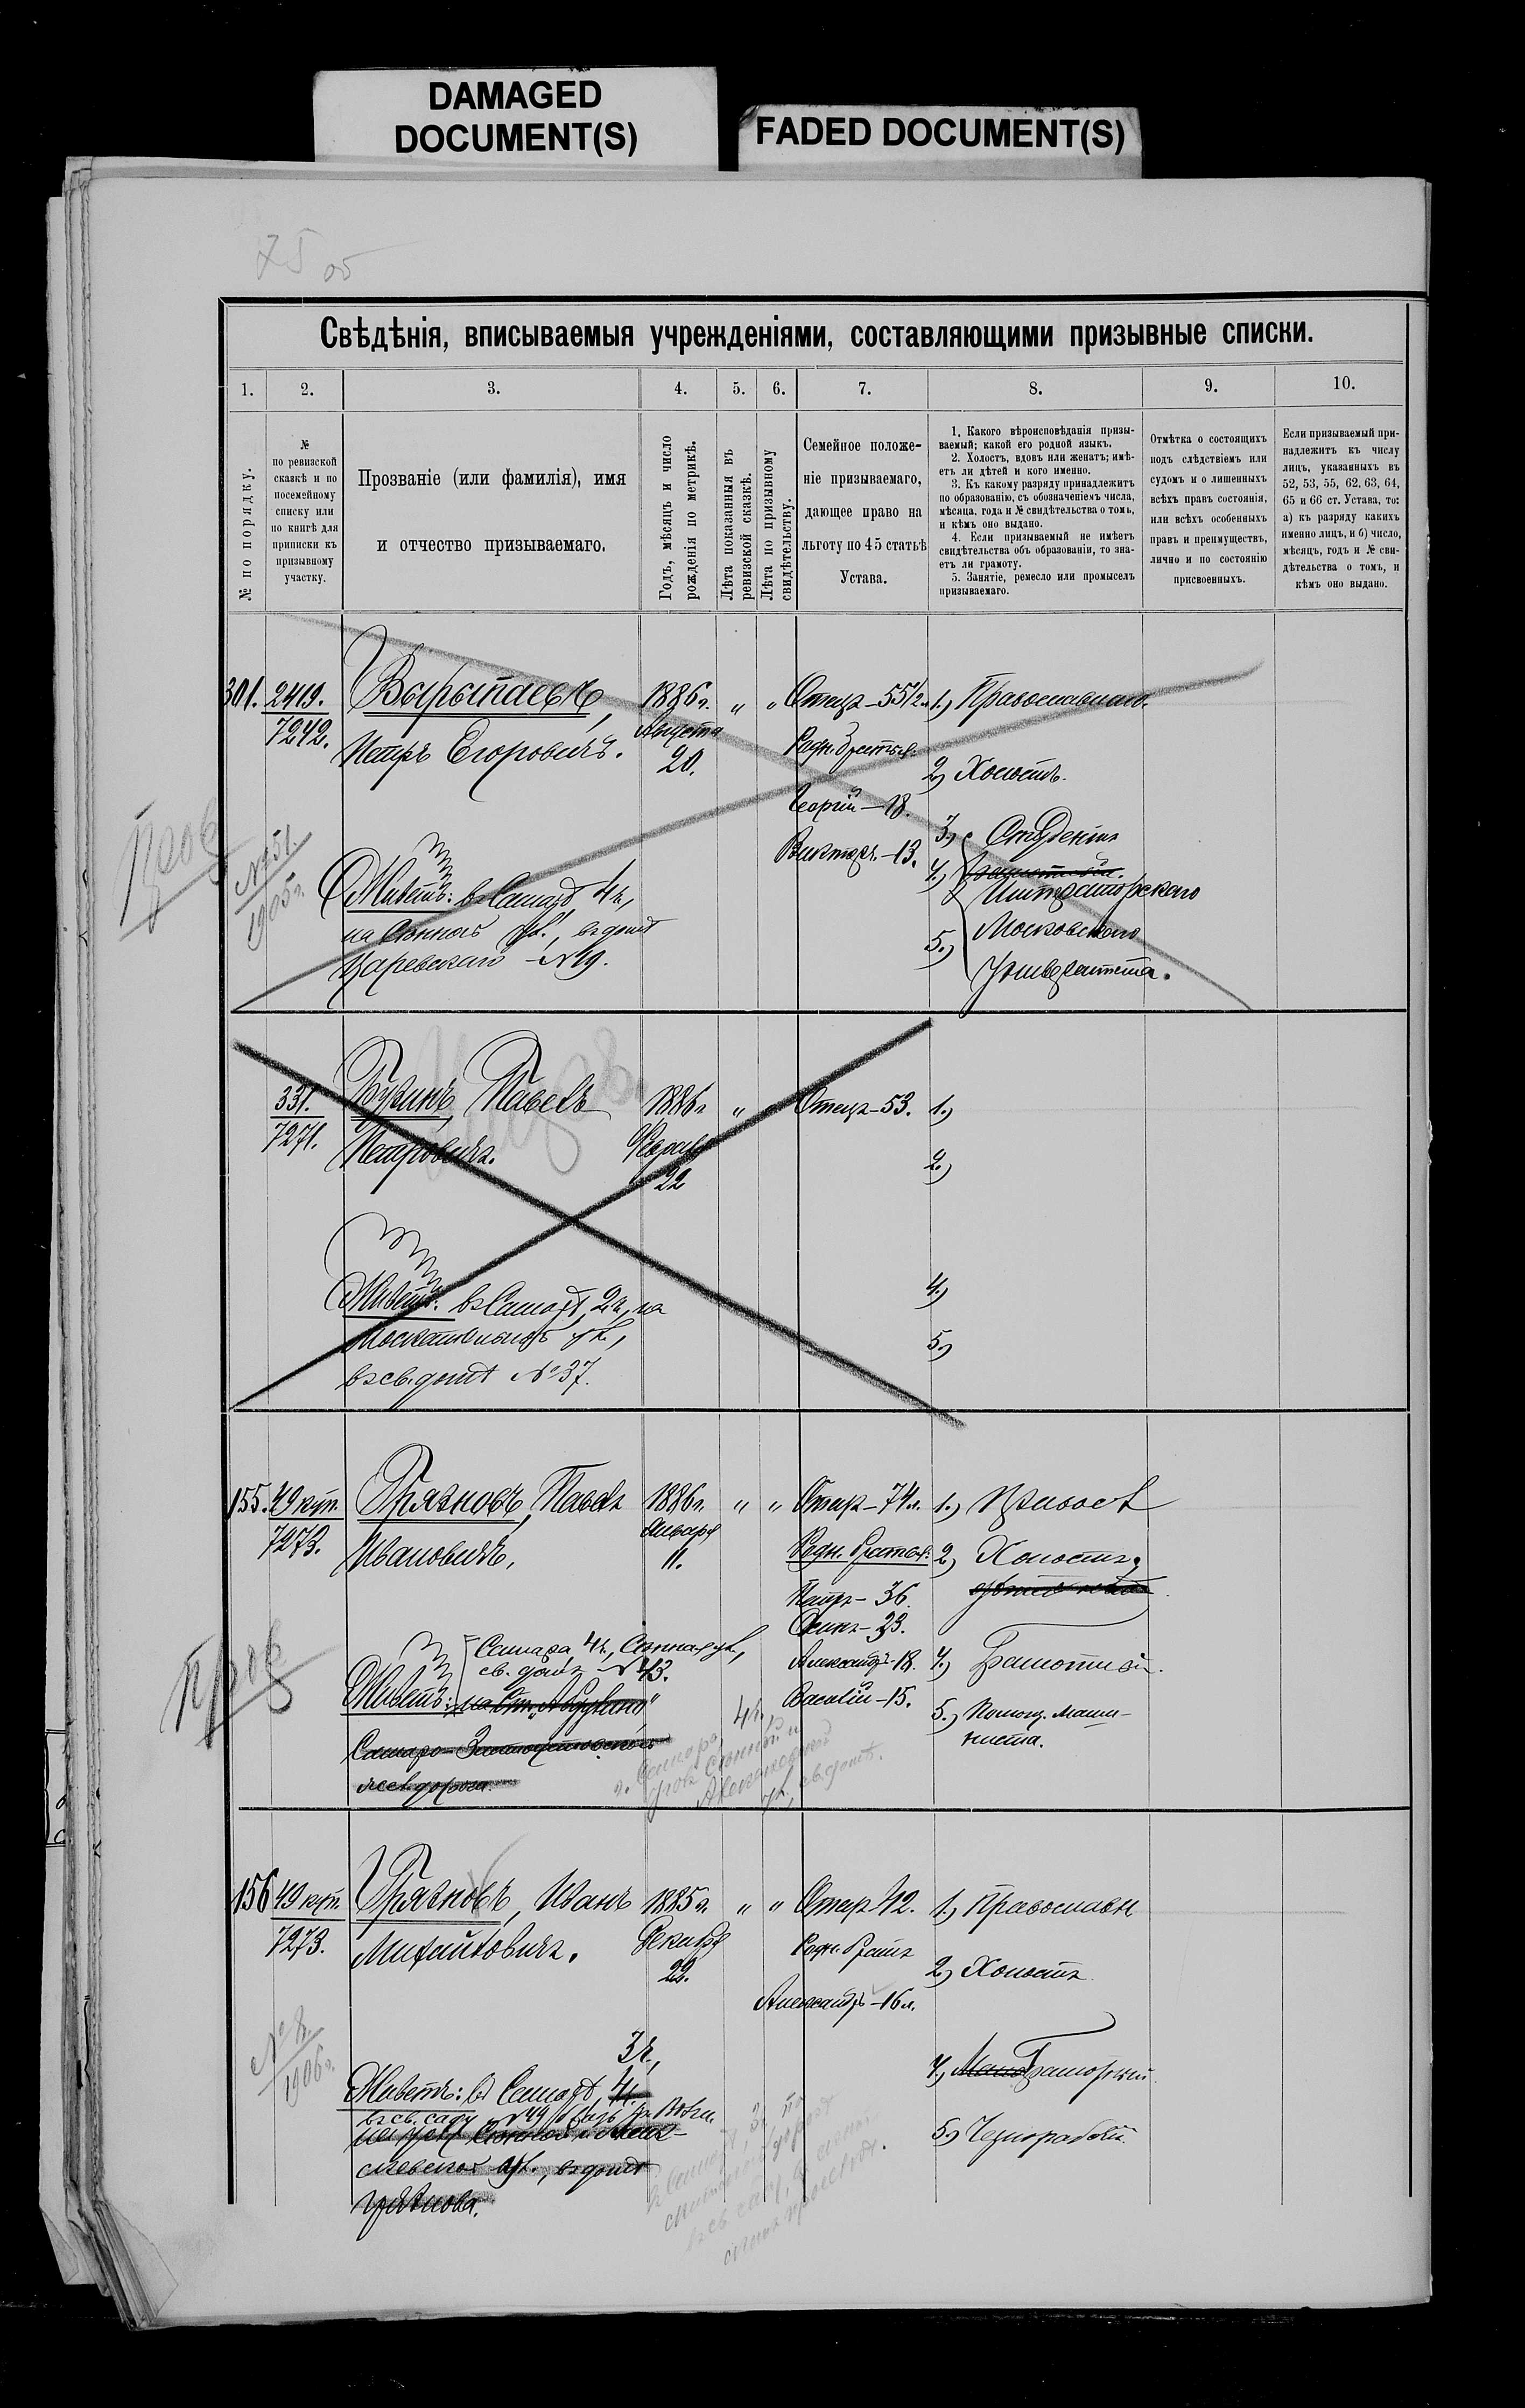 DAMAGED
DOCUMENT(S)
FADED DOCUMENT(S)
75 об
Свѣдѣнія, вписываемыя учрежденіями, составляющими призывные списки.
1. 2. 3. 4. 5. 6. 7. 8. 9. 10.
№ по порядку.
№
по ревизской
сказкѣ и по
посемейному
списку или
по книгѣ для
приписки къ
призывному
участку.
Прозваніе (или фамилія), имя
и отчество призываемаго.
Годъ, мѣсяцъ и число
рожденія по метрикѣ.
Лѣта показанныя въ
ревизской сказкѣ.
Лѣта по призывному
свидѣтельству.
Семейное положе-
ніе призываемаго,
дающее право на
льготу по 45 статьѣ
Устава.
1. Какого вѣроисповѣданія призы-
ваемый; какой его родной языкъ.
2. Холостъ, вдовъ или женатъ; имѣ-
етъ ли дѣтей и кого именно.
3. Къ какому разряду принадлежитъ
по образованію, съ обозначеніемъ числа,
мѣсяца, года и № свидѣтельства о томъ,
и кѣмъ оно выдано.
4. Если призываемый не имѣетъ
свидѣтельства объ образованіи, то зна-
етъ ли грамоту.
5. Занятіе, ремесло или промыселъ
призываемаго.
Отмѣтка о состоящихъ
подъ слѣдствіемъ или
судомъ и о лишенныхъ
всѣхъ правъ состоянія,
или всѣхъ особенныхъ
правъ и преимуществъ,
лично и по состоянію
присвоенныхъ.
Если призываемый при-
надлежитъ къ числу
лицъ, указанныхъ въ
52, 53, 55, 62, 63, 64,
65 и 66 ст. Устава, то:
а) къ разряду какихъ
именно лицъ, и б) число,
мѣсяцъ, годъ и № сви-
дѣтельства о томъ, и
кѣмъ оно выдано.
301. 2419. 1886г. " " Отецъ-55½л. 1.) Православнаго.
7242. Петръ Егоровичъ. Августа Родн. братья:
20. 2) Холостъ.
Георгій-18.
Викторъ-13. 3.) Студентъ
№51. 4.)
1905г. Живетъ: въ Самарѣ, 4ч., Императорскаго
на Сѣнной ул., въ домѣ 5.) Московскаго
Царевскаго - №19. Университета.
331. Павелъ 1886г. " " Отецъ-53. 1.)
7271. Петровичъ. Февраля
22 2.)
Живетъ: въ Самарѣ, 2ч., на 4.)
Москательной ул., 5.)
въ св. домѣ №37.
155. 49 куп. Грязновъ, Павелъ 1886г. " " Отецъ-74л. 1.) Правосл
7273. Ивановичъ, Января Родн. братья: 2.) Холостъ,
11.
Петръ-36.
23.
Самара, 4ч., Сѣнная ул., Александръ-18. 4.) Грамотный.
св. домъ №43.
Живетъ: на Ст. "Абдулино" Василій-15. 5.) Помощ. Маши-
Самаро-Златоустовской ниста.
жел. дорога.
г. Самара, 4ч.,
уголъ Сѣнной и
Алексѣевской
ул., св. домъ.
156 49 куп. Грязновъ, Иванъ 1885г. " " Отецъ 42. 1.) Православн
7273. Михайловичъ. Декабря Родн. братъ
22. 2.) Холостъ.
Александръ-16л.
№8. 3ч.,
1906г. 4.) Мало Грамотный.
Живетъ: въ Самарѣ, 4ч.
въ св. саду №44
на углу Сѣнной и Алек- 5.) Чернорабочій.
сѣевской ул., въ домѣ
Грязнова.